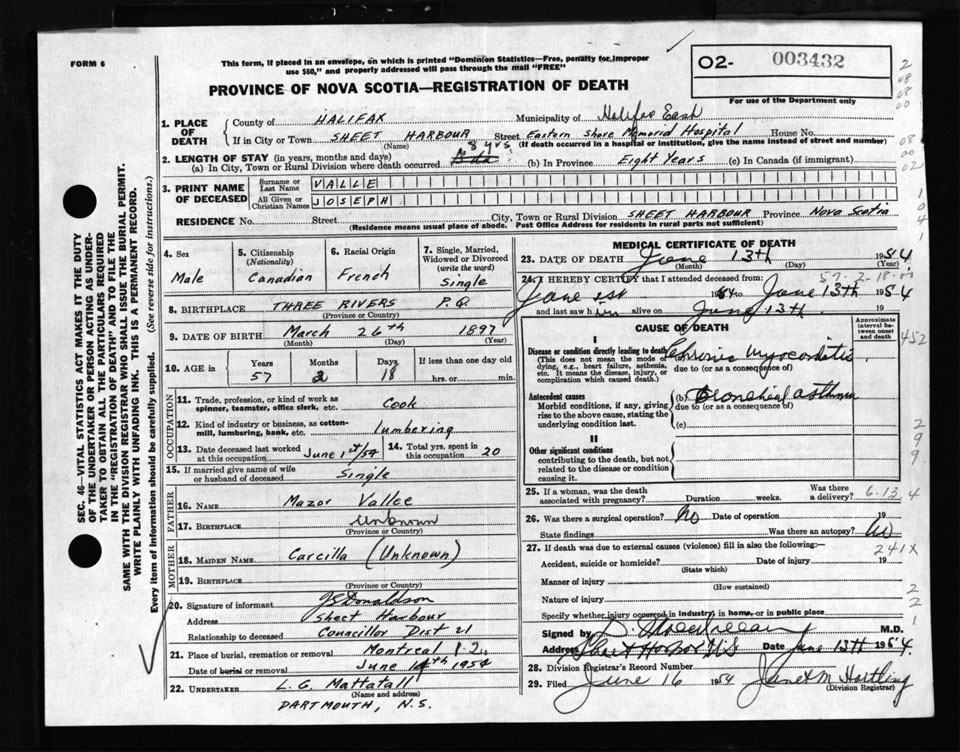 FORM 6
This form, if placed in an envelope, on which is printed "Dominion Statistics—Free, penalty for improper
use $50," and properly addressed will pass through the mail "FREE"
O2- 003432
For use of the Department only
PROVINCE OF NOVA SCOTIA—REGISTRATION OF DEATH
1. PLACE OF DEATH
County of HALIFAX Municipality of Halifax East
If in City or Town SHEET HARBOUR Street Eastern Shore Memorial Hospital House No.
(Name) (If death occurred in a hospital or institution, give the name instead of street and number)
2. LENGTH OF STAY (in years, months and days)
(a) In City, Town or Rural Division where death occurred 8 yrs. (b) In Province Eight Years (c) In Canada (if immigrant)
3. PRINT NAME OF DECEASED
Surname or Last Name VALLE
All Given or Christian Names JOSEPH
RESIDENCE No. Street City, Town or Rural Division SHEET HARBOUR Province Nova Scotia
(Residence means usual place of abode. Post Office Address for residents in rural parts not sufficient)
4. Sex
Male
5. Citizenship
(Nationality)
Canadian
6. Racial Origin
French
7. Single, Married,
Widowed or Divorced
(write the word)
Single
8. BIRTHPLACE THREE RIVERS P.Q
(Province or Country)
9. DATE OF BIRTH March 26th 1897
(Month) (Day) (Year)
10. AGE in Years Months Days If less than one day old
57 2 18 hrs. or min.
OCCUPATION
11. Trade, profession, or kind of work as
spinner, teamster, office clerk, etc. Cook
12. Kind of industry or business, as cotton-
mill, lumbering, bank, etc. lumbering
13. Date deceased last worked
at this occupation June 1st/54
14. Total yrs. spent in
this occupation 20
15. If married give name of wife
or husband of deceased Single
FATHER
16. Name Mazor Vallee
17. BIRTHPLACE Unknown
(Province or Country)
MOTHER
18. MAIDEN NAME Carcilla (Unknown)
19. BIRTHPLACE
(Province or Country)
20. Signature of informant Donaldson
Address Sheet Harbour
Relationship to deceased Councillor Dist 21
21. Place of burial, cremation or removal Montreal P.Q.
Date of burial or removal June 14th 1954
22. UNDERTAKER L. G. Mattatall
(Name and address)
DARTMOUTH, N.S.
MEDICAL CERTIFICATE OF DEATH
23. DATE OF DEATH June 13th 1954
(Month) (Day) (Year)
24. I HEREBY CERTIFY that I attended deceased from:
June 1st 54 to June 13th 1954
and last saw him alive on June 13th 19
CAUSE OF DEATH
Approximate
interval be-
tween onset
and death
I
Disease or condition directly leading to death
(This does not mean the mode of
dying, e.g., heart failure, asthenia,
etc. It means the disease, injury, or
complication which caused death.)
Chronic Myocarditis
due to (or as a consequence of)
Antecedent causes
Morbid conditions, if any, giving
rise to the above cause, stating the
underlying condition last.
(b) Bronchial asthma
due to (or as a consequence of)
(c)
II
Other significant conditions
contributing to the death, but not
related to the disease or condition
causing it.
25. If a woman, was the death
associated with pregnancy? Duration weeks. Was there
a delivery?
26. Was there a surgical operation? No Date of operation 19
State findings Was there an autopsy? No
27. If death was due to external causes (violence) fill in also the following:—
241X
Accident, suicide or homicide? Date of injury 19
(State which)
Manner of injury
(How sustained)
Nature of injury
Specify whether injury occurred in industry, in home, or in public place
Signed by M.D.
Address Sheet Harbor N.S Date June 13th 1954.
28. Division Registrar's Record Number
29. Filed June 16 1954 Janet M Hartling
(Division Registrar)
SEC. 46—VITAL STATISTICS ACT MAKES IT THE DUTY
OF THE UNDERTAKER OR PERSON ACTING AS UNDER-
TAKER TO OBTAIN ALL THE PARTICULARS REQUIRED
IN THE "REGISTRATION OF DEATH" AND TO FILE THE
SAME WITH THE DIVISION REGISTRAR WHO SHALL ISSUE THE BURIAL PERMIT.
WRITE PLAINLY WITH UNFADING INK. THIS IS A PERMANENT RECORD.
Every item of information should be carefully supplied. (See reverse side for instructions.)